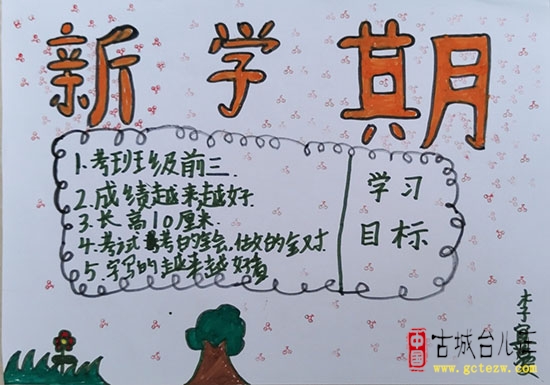 新学期
1.考班级前三
2.成绩越来越好.
3.长高10厘米.
4.考试 考的全会,做的全对
5.字写的越来越好看
学习
目标
中国
古城台儿庄
www.gctezw.com